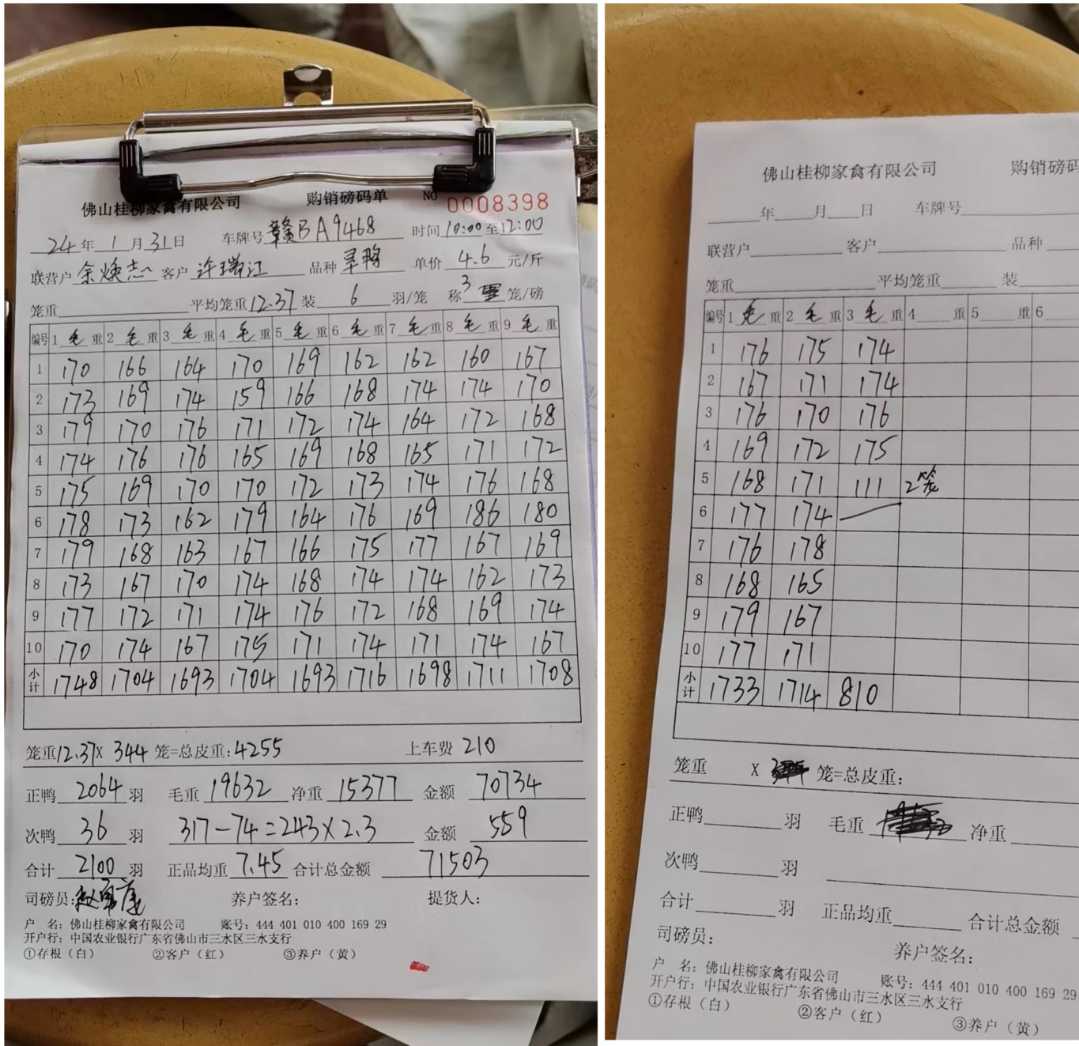 佛山桂柳家禽有限公司 购销磅码单 NO 0008398
24年1月31日 车牌号 赣BA9468 时间 10:00至12:00
联营户 余焕志 客户 许瑞江 品种 单价 4.6 元/斤
笼重 平均笼重 12.37 装 6 羽/笼 称 3 笼/磅
编号 1 毛 重 2 毛 重 3 毛 重 4 毛 重 5 毛 重 6 毛 重 7 毛 重 8 毛 重 9 毛 重
1 170 166 164 170 169 162 162 160 167
2 173 169 174 159 166 168 174 174 170
3 179 170 176 171 172 174 164 172 168
4 174 176 176 165 169 168 165 171 172
5 175 169 170 170 172 173 174 176 168
6 178 173 162 179 164 176 169 186 180
7 179 168 163 167 166 175 177 167 169
8 173 167 170 174 168 174 174 162 173
9 177 172 171 174 176 172 168 169 174
10 170 174 167 175 171 174 171 174 167
小计 1748 1704 1693 1704 1693 1716 1698 1711 1708
笼重 12.37 X 344 笼=总皮重: 4255 上车费 210
正鸭 2064 羽 毛重 19632 净重 15377 金额 70734
次鸭 36 羽 317-74=243×2.3 金额 559
合计 2100 羽 正品均重 7.45 合计总金额 71503
司磅员: 养户签名: 提货人:
户 名: 佛山桂柳家禽有限公司 账号: 444 401 010 400 169 29
开户行: 中国农业银行广东省佛山市三水区三水支行
①存根(白) ②客户(红) ③养户(黄)
佛山桂柳家禽有限公司 购销磅码
年 月 日 车牌号
联营户 客户 品种
笼重 平均笼重 装
编号 1 毛 重 2 毛 重 3 毛 重 4 重 5 重 6
1 176 175 174
2 167 171 174
3 176 170 176
4 169 172 175
5 168 171 111 2笼
6 177 174
7 176 178
8 168 165
9 179 167
10 177 171
小计 1733 1714 810
笼重 X 笼=总皮重:
正鸭 羽 毛重 净重
次鸭 羽
合计 羽 正品均重 合计总金额
司磅员: 养户签名:
户 名: 佛山桂柳家禽有限公司 账号: 444 401 010 400 169 29
开户行: 中国农业银行广东省佛山市三水区三水支行
①存根(白) ②客户(红) ③养户(黄)